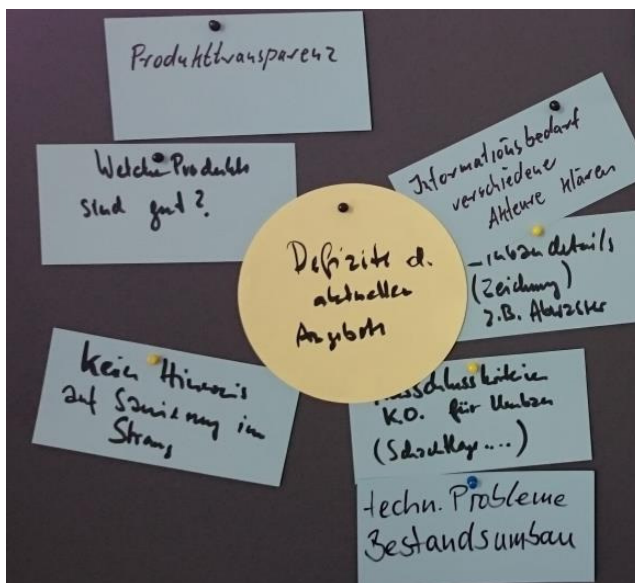 Produkttransparenz
Welche Produkte
sind gut?
Informationsbedarf
verschiedener
Akteure klären
Defizite d.
aktuellen
Angebots
(Zeichnung)
z.B. Abwasser
Kein Hinweis
auf Sanierung im
Strang
K.O. für Umbau
(Schachtlage....)
techn. Probleme
Bestandsumbau